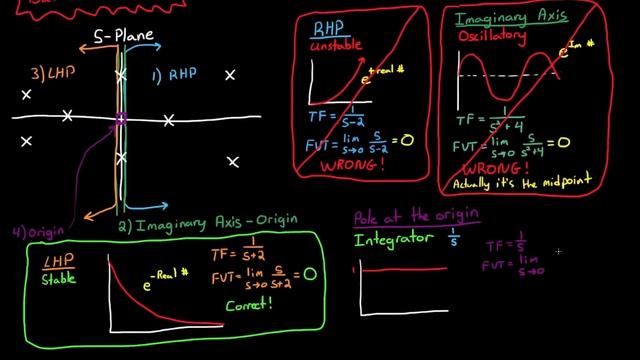 S-Plane
3) LHP
1) RHP
4) Origin
2) Imaginary Axis-Origin
RHP
Unstable
e^+real #
TF = 1/(s-2)
FVT = lim s→0 s/(s-2) = 0
WRONG!
Imaginary Axis
Oscillatory
e^Im #
TF = 1/(s²+4)
FVT = lim s→0 s/(s²+4) = 0
WRONG!
Actually it's the midpoint
LHP
Stable
e^-Real #
TF = 1/(s+2)
FVT = lim s→0 s/(s+2) = 0
Correct!
Pole at the origin
Integrator 1/s
1
TF = 1/s
FVT = lim s→0